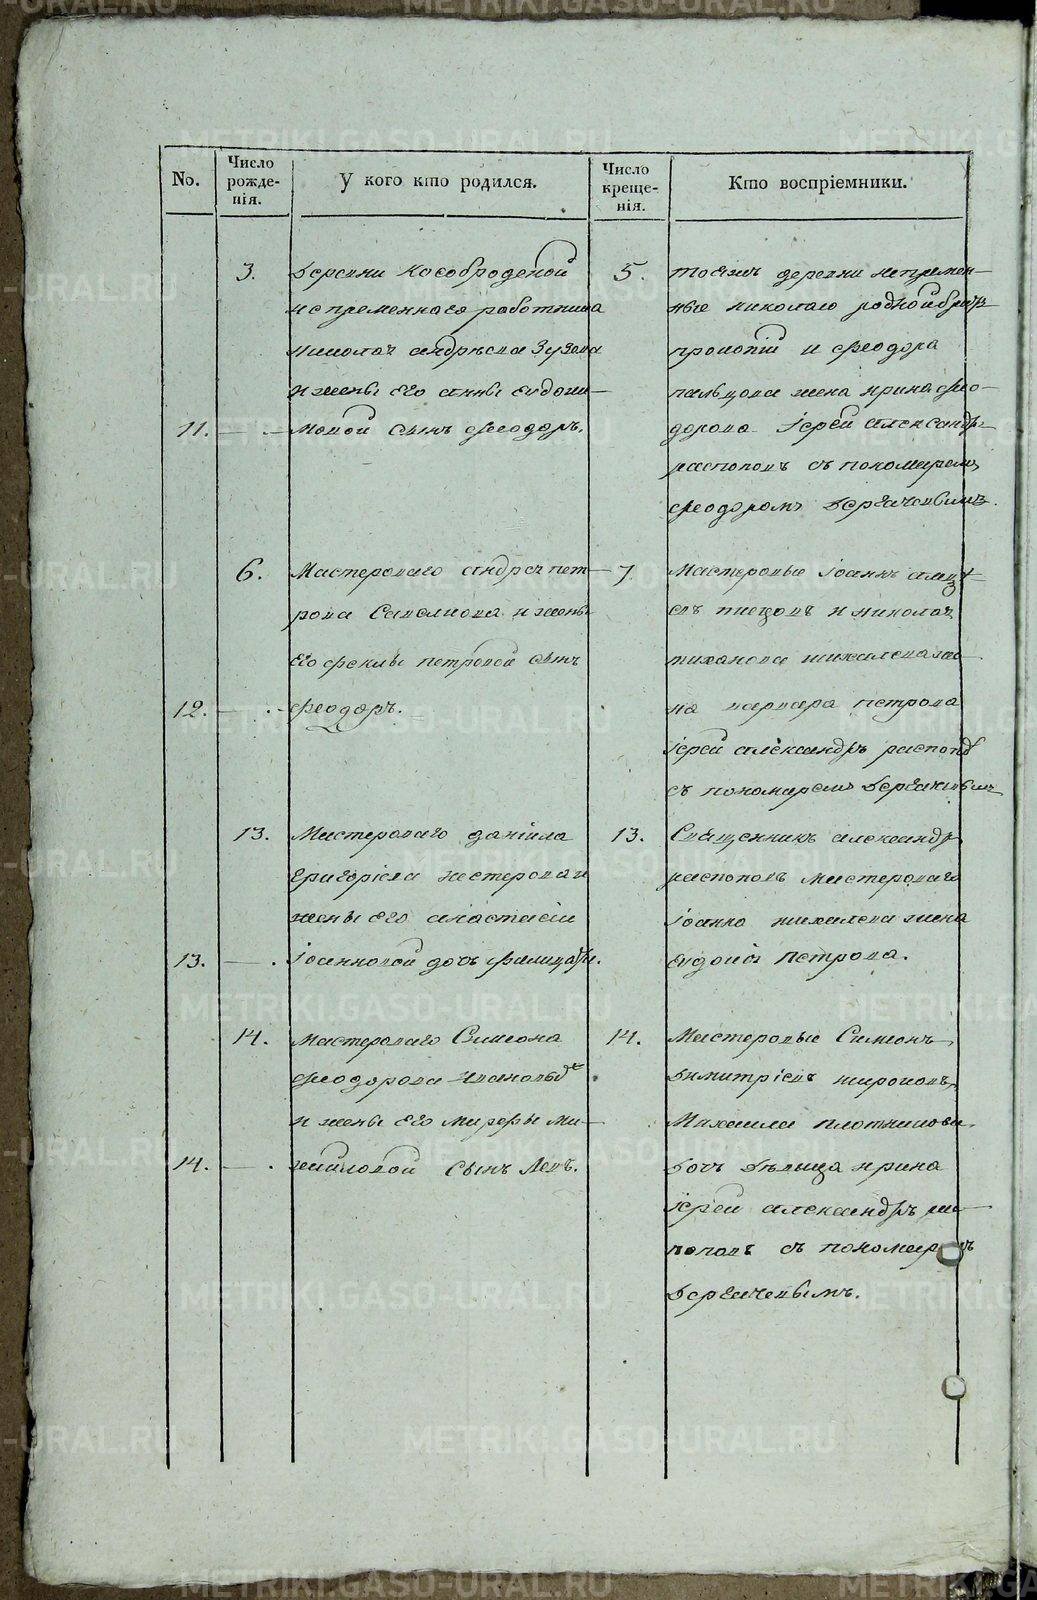 No.
Число рожде-нія.
У кого кто родился.
Число креще-нія.
Кто воспріемники.
3.
Деревни Кособродской
непременнаго работника
николая андрѣева Зузова
и жены его анны евдоки-
11.
мовой сынъ феодоръ.
5.
тоежъ деревни непремен-
ные николаю родной братъ
прокопій и феодора
пальцова жена ирина фео-
дорова іерей александръ
распоповъ съ пономаремъ
феодоромъ
6.
Мастероваго андрея пет-
рова Савелкова и жены
его феклы петровой сынъ
12.
феодоръ.
7
Мастеровые іоаннъ
и николая
тиханова михалева же-
на варвара петрова
іерей александръ распопов
съ пономаремъ
13.
Мастероваго даніила
григоріева нестерова и
жены его анастасіи
13.
іоанновой дочь
13.
Священникъ александръ
распоповъ мастероваго
іоанна михалева жена
евдокія петрова.
14.
мастероваго Симеона
феодорова
и жены его марфы ми-
14.
хайловой сынъ Левъ.
14.
Мастеровые Симеонъ
димитріевъ широковъ,
Михаила плотникова
дочь дѣвица ирина
іерей александръ рас-
поповъ съ пономаремъ
METRIKI.GASO-URAL.RU